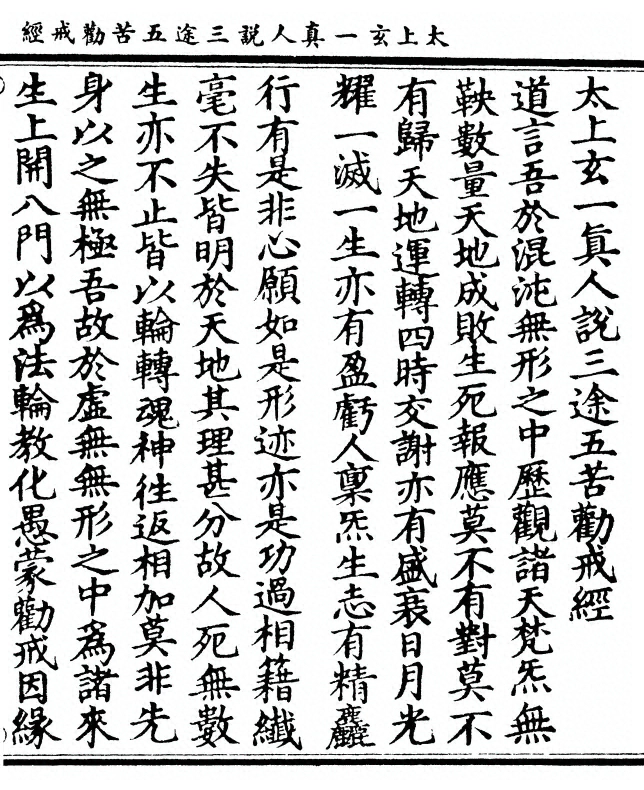 太上玄一真人説三途五苦勸戒經
太上玄一真人說三途五苦勸戒經
道言吾於混沌無形之中歷觀諸天梵炁無
鞅數量天地成敗生死報應莫不有對莫不
有歸天地運轉四時交謝亦有盛衰日月光
耀一滅一生亦有盈虧人稟炁生志有精麤
行有是非心願如是形迹亦是功過相籍纖
毫不失皆明於天地其理甚分故人死無數
生亦不止皆以輪轉魂神往返相加莫非先
身以之無極吾故於虛無無形之中爲諸來
生上開八門以爲法輪教化愚蒙勸戒因緣